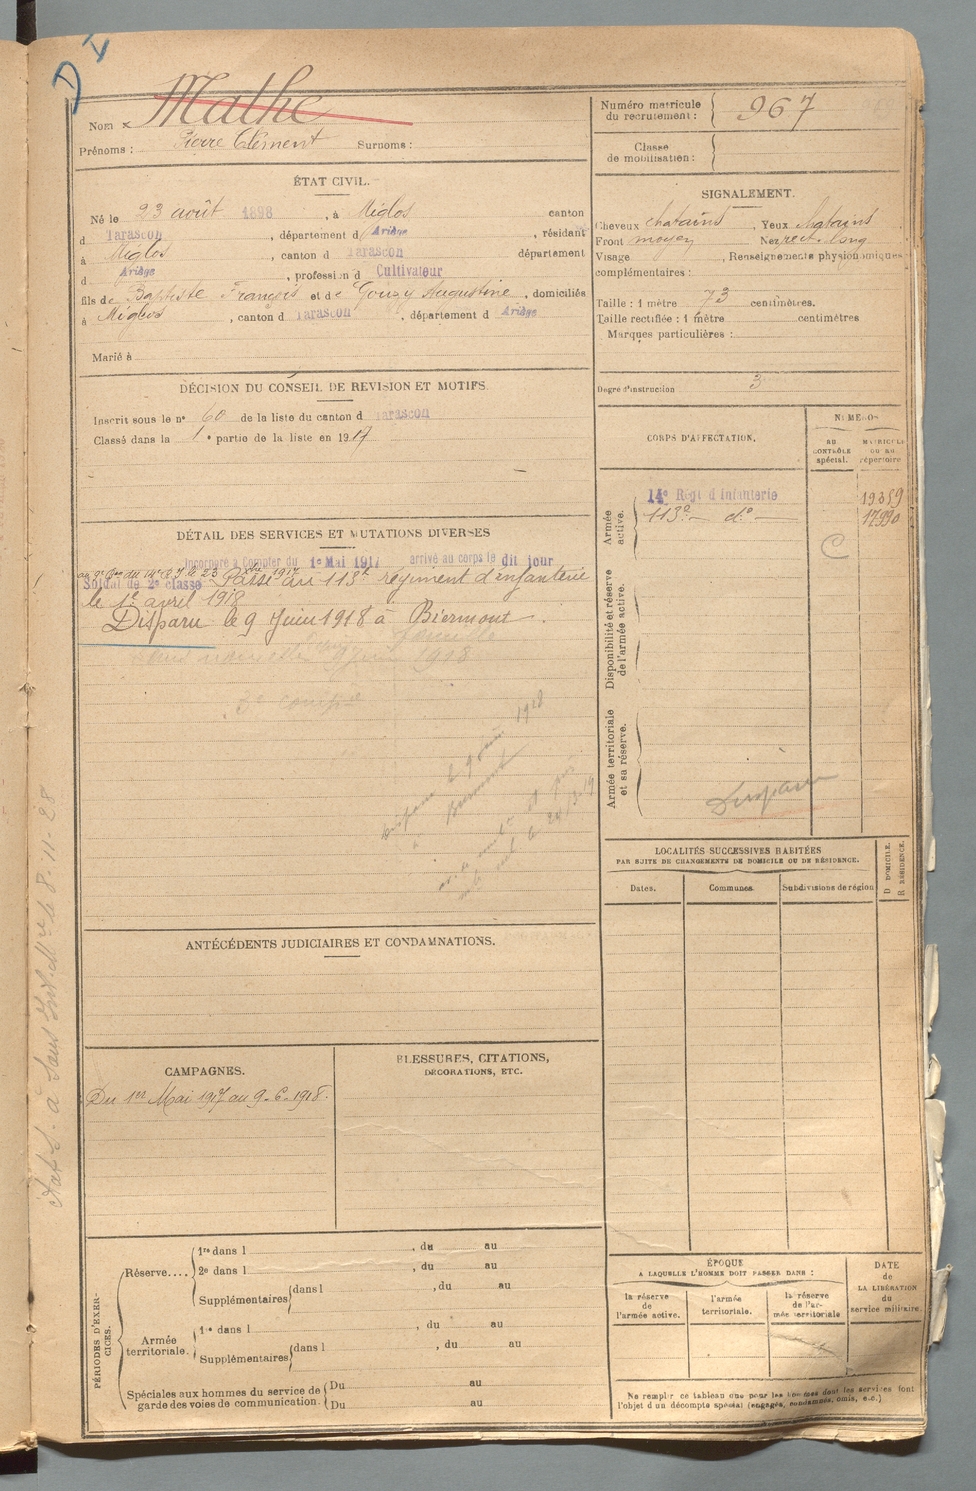 D
Nom : Mathe
Prénoms : Pierre Clément Surnoms :
Numéro matricule du recrutement : 967
Classe de mobilisation :
ÉTAT CIVIL.
Né le 23 août 1898, à Miglos canton
d Tarascon, département d Ariège, résidant
à Miglos, canton d Tarascon département
d Ariège, profession d Cultivateur
fils de Baptiste François et de Gouzy Augustine, domiciliés
à Miglos, canton d Tarascon, département d Ariège
Marié à
SIGNALEMENT.
Cheveux chatains, Yeux
Front moyen, Nez rect. long
Visage, Renseignements physionomiques
complémentaires :
Taille : 1 mètre 73 centimètres.
Taille rectifiée : 1 mètre centimètres
Marques particulières :
Degré d'instruction 3
DÉCISION DU CONSEIL DE REVISION ET MOTIFS.
Inscrit sous le nº 60 de la liste du canton d Tarascon
Classé dans la 1e partie de la liste en 1917
CORPS D'AFFECTATION.
NUMÉROS
AU CONTRÔLE spécial.
MATRICULE OU AU répertoire
Armée active.
14e Régt d'Infanterie 19359
113e — do — 17990
C
Disponibilité et réserve de l'armée active.
Armée territoriale et sa réserve.
Disparu
DÉTAIL DES SERVICES ET MUTATIONS DIVERSES
Incorporé à Compter du 1er Mai 1917 arrivé au corps le dit jour
Soldat de 2e classe Passé au 113e régiment d'infanterie
le 1er avril 1918
Disparu le 9 Juin 1918 à Biermont.
1918
disparu le 9 Juin 1918
Biermont
ANTÉCÉDENTS JUDICIAIRES ET CONDAMNATIONS.
CAMPAGNES.
Du 1er Mai 1917 au 9-6-1918.
BLESSURES, CITATIONS,
DÉCORATIONS, ETC.
LOCALITÉS SUCCESSIVES HABITÉES
PAR SUITE DE CHANGEMENTS DE DOMICILE OU DE RÉSIDENCE.
Dates.
Communes.
Subdivisions de région
D DOMICILE.
R RÉSIDENCE.
PÉRIODES D'EXERCICES.
Réserve....
1re dans l , du au
2e dans l , du au
Supplémentaires dans l , du au
Armée territoriale.
1re dans l , du au
Supplémentaires dans l , du au
Spéciales aux hommes du service de garde des voies de communication.
Du au
Du au
ÉPOQUE
A LAQUELLE L'HOMME DOIT PASSER DANS :
la réserve de l'armée active.
l'armée territoriale.
la réserve de l'armée territoriale
DATE de LA LIBÉRATION du service militaire.
Ne remplir ce tableau que pour les hommes dont les services font
l'objet d'un décompte spécial (engagés, condamnés, omis, etc.)